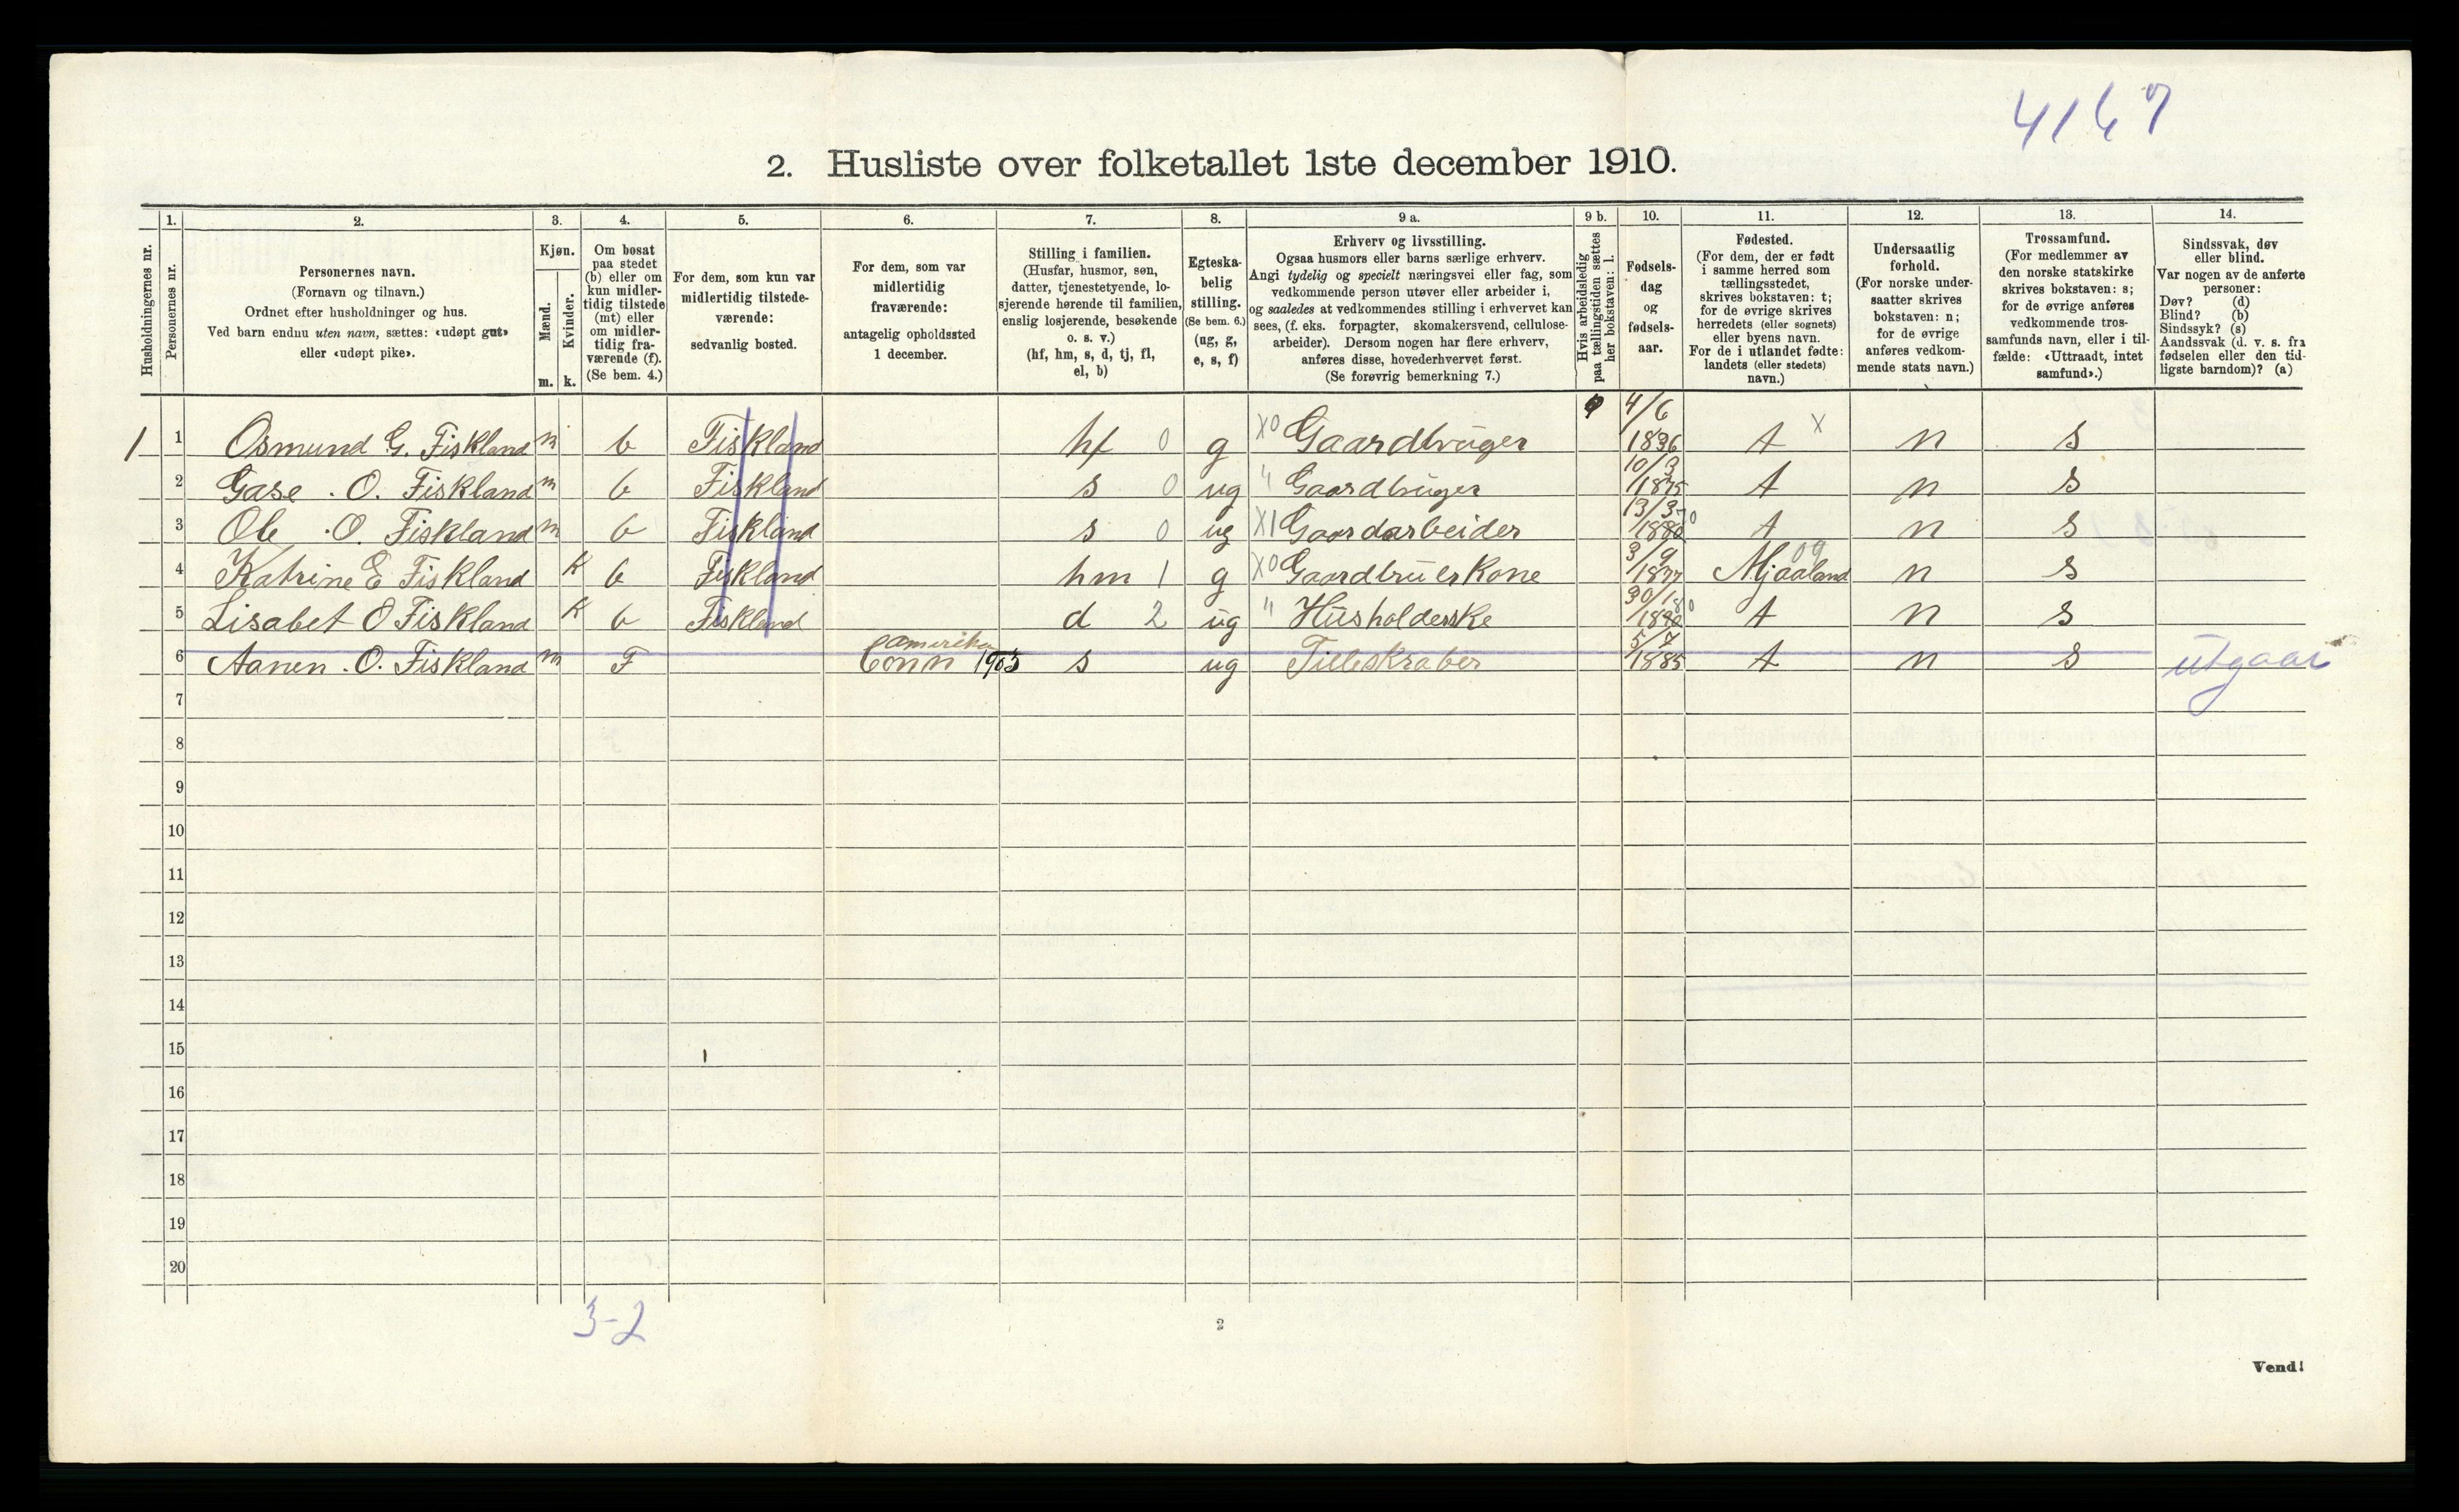 4167
2. Husliste over folketallet 1ste december 1910.
Husholdningernes nr.
1.
Personernes nr.
2.
Personernes navn.
(Fornavn og tilnavn.)
Ordnet efter husholdninger og hus.
Ved barn endnu uten navn, sættes: «udøpt gut»
eller «udøpt pike».
3.
Kjøn.
Mænd.
Kvinder.
m. k.
4.
Om bosat
paa stedet
(b) eller om
kun midler-
tidig tilstede
(mt) eller
om midler-
tidig fra-
værende (f).
(Se bem. 4.)
5.
For dem, som kun var
midlertidig tilstede-
værende:
sedvanlig bosted.
6.
For dem, som var
midlertidig
fraværende:
antagelig opholdssted
1 december.
7.
Stilling i familien.
(Husfar, husmor, søn,
datter, tjenestetyende, lo-
sjerende hørende til familien,
enslig losjerende, besøkende
o. s. v.)
(hf, hm, s, d, tj, fl,
el, b)
8.
Egteska-
belig
stilling.
(Se bem. 6.)
(ug, g,
e, s, f)
9 a.
Erhverv og livsstilling.
Ogsaa husmors eller barns særlige erhverv.
Angi tydelig og specielt næringsvei eller fag, som
vedkommende person utøver eller arbeider i,
og saaledes at vedkommendes stilling i erhvervet kan
sees, (f. eks. forpagter, skomakersvend, cellulose-
arbeider). Dersom nogen har flere erhverv,
anføres disse, hovederhvervet først.
(Se forøvrig bemerkning 7.)
9 b.
Hvis arbeidsledig
paa tællingstiden sættes
her bokstaven: l.
10.
Fødsels-
dag
og
fødsels-
aar.
11.
Fødested.
(For dem, der er født
i samme herred som
tællingsstedet,
skrives bokstaven: t;
for de øvrige skrives
herredets (eller sognets)
eller byens navn.
For de i utlandet fødte:
landets (eller stedets)
navn.)
12.
Undersaatlig
forhold.
(For norske under-
saatter skrives
bokstaven: n;
for de øvrige
anføres vedkom-
mende stats navn.)
13.
Trossamfund.
(For medlemmer av
den norske statskirke
skrives bokstaven: s;
for de øvrige anføres
vedkommende tros-
samfunds navn, eller i til-
fælde: «Uttraadt, intet
samfund».)
14.
Sindssvak, døv
eller blind.
Var nogen av de anførte
personer:
Døv? (d)
Blind? (b)
Sindssyk? (s)
Aandssvak (d. v. s. fra
fødselen eller den tid-
ligste barndom)? (a)
1 1 Osmund G. Fiskland m b Fiskland hf 0 g X0 Gaardbruger 4/6 1836 t X n s
2 Gase . O. Fiskland m b Fiskland s 0 ug " Gaardbruger 10/3 1875 t n s
3 Ole . O. Fiskland m b Fiskland s 0 ug X1 Gaardarbeider 13/3 1880 t n s
4 Katrine E Fiskland k b Fiskland hm 1 g X0 Gaardbruerkone 3/9 1877 Mjaaland 09 n s
5 Lisabet O Fiskland k b Fiskland d 2 ug " Husholderske 30/1 t n s
6 Aanen . O. Fiskland m F amerika Conn 1903 s ug ber 5/7 1885 t n s utgaar
7
8
9
10
11
12
13
14
15
16
17
18
19
20
3-2
2
Vend!